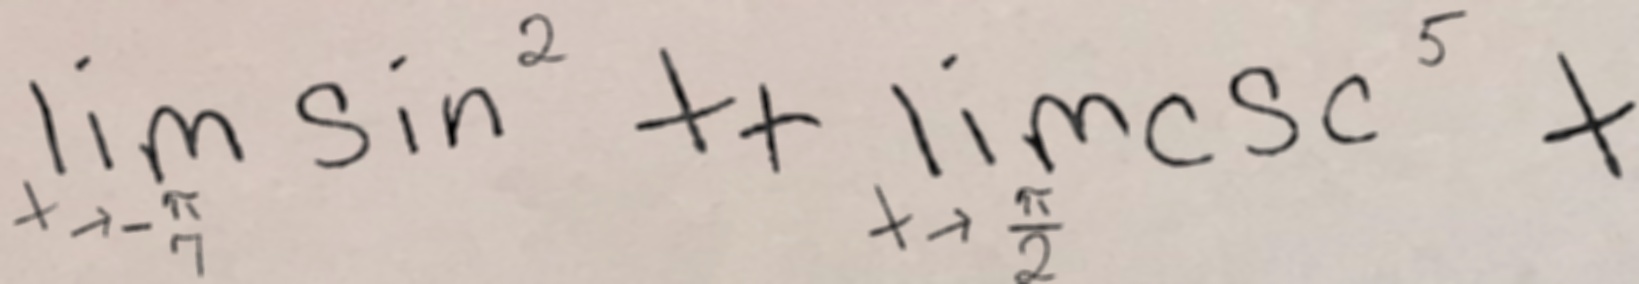 \lim_{x \to -\frac{\pi}{7}} \sin^2 x + \lim_{x \to \frac{\pi}{2}} \csc^5 x